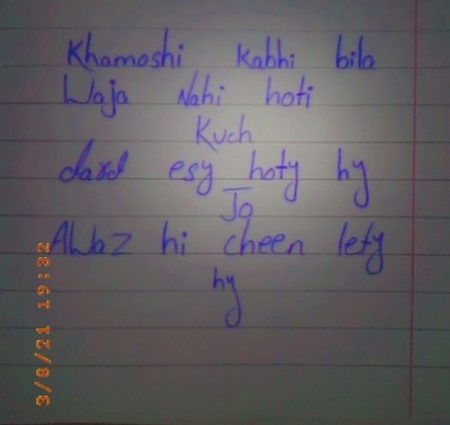 Khamoshi Kabhi bila
Waja Nahi hoti
Kuch
dard esy hoty hy
Jo
AWaz hi cheen lety
hy
3/8/21 19:32